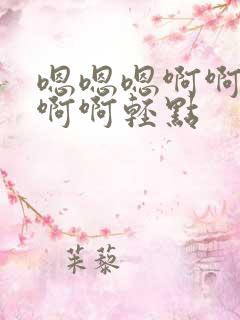 嗯嗯嗯啊啊
啊啊轻點
茱藜